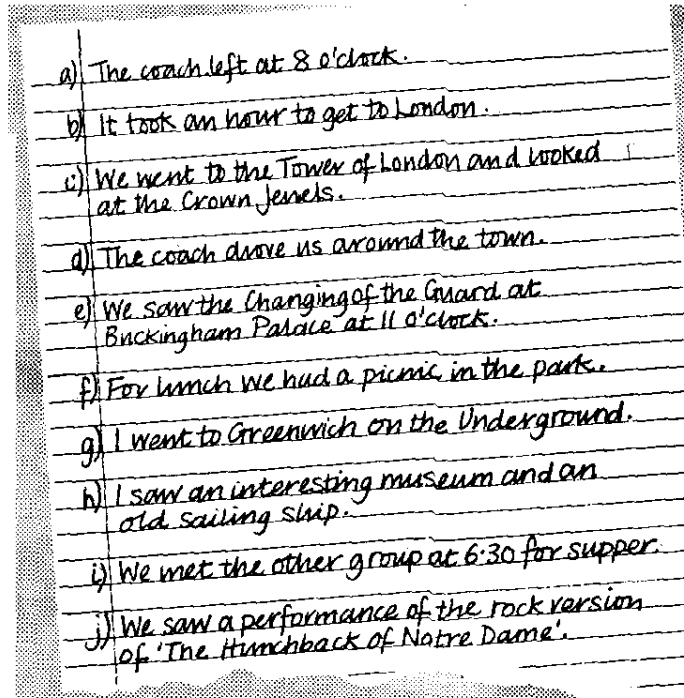 a) The coach left at 8 o'clock.
b) It took an hour to get to London.
c) We went to the Tower of London and looked
at the Crown Jewels.
d) The coach drove us around the town.
e) We saw the Changing of the Guard at
Buckingham Palace at 11 o'clock.
f) For lunch we had a picnic in the park.
g) I went to Greenwich on the Underground.
h) I saw an interesting museum and an
old sailing ship.
i) We met the other group at 6·30 for supper.
j) We saw a performance of the rock version
of 'The Hunchback of Notre Dame'.